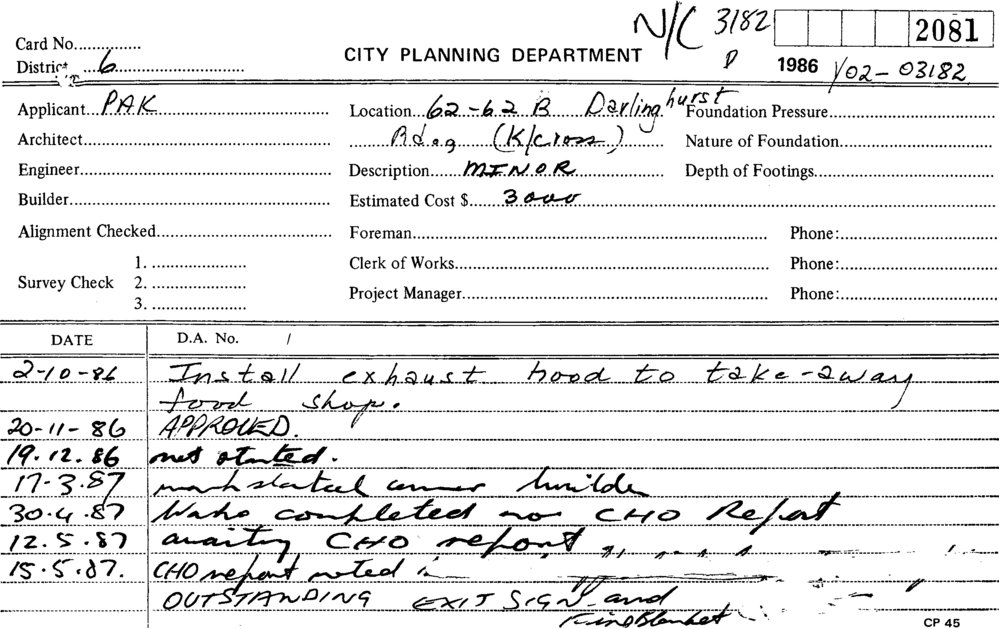 N/C 3182 2081
Card No...............
CITY PLANNING DEPARTMENT
P 1986 Y02-03182
District 6
Applicant PAK
Location 62-62B Darlinghurst
Foundation Pressure
Architect
Rdog (K/Cross)
Nature of Foundation
Engineer
Description MINOR
Depth of Footings
Builder
Estimated Cost $ 3000
Alignment Checked
Foreman
Phone:
Survey Check 1.
2.
3.
Clerk of Works
Phone:
Project Manager
Phone:
DATE D.A. No. /
2-10-86 Install exhaust hood to take-away
food shop.
20-11-86 APPROVED.
19.12.86 not started.
17-3.87 work started owner builder
30.4.87 Works completed no CHO Report
12.5.87 awaiting CHO report
15.5.87. CHO report noted
OUTSTANDING EXIT SIGN and
Fire Blanket
CP 45